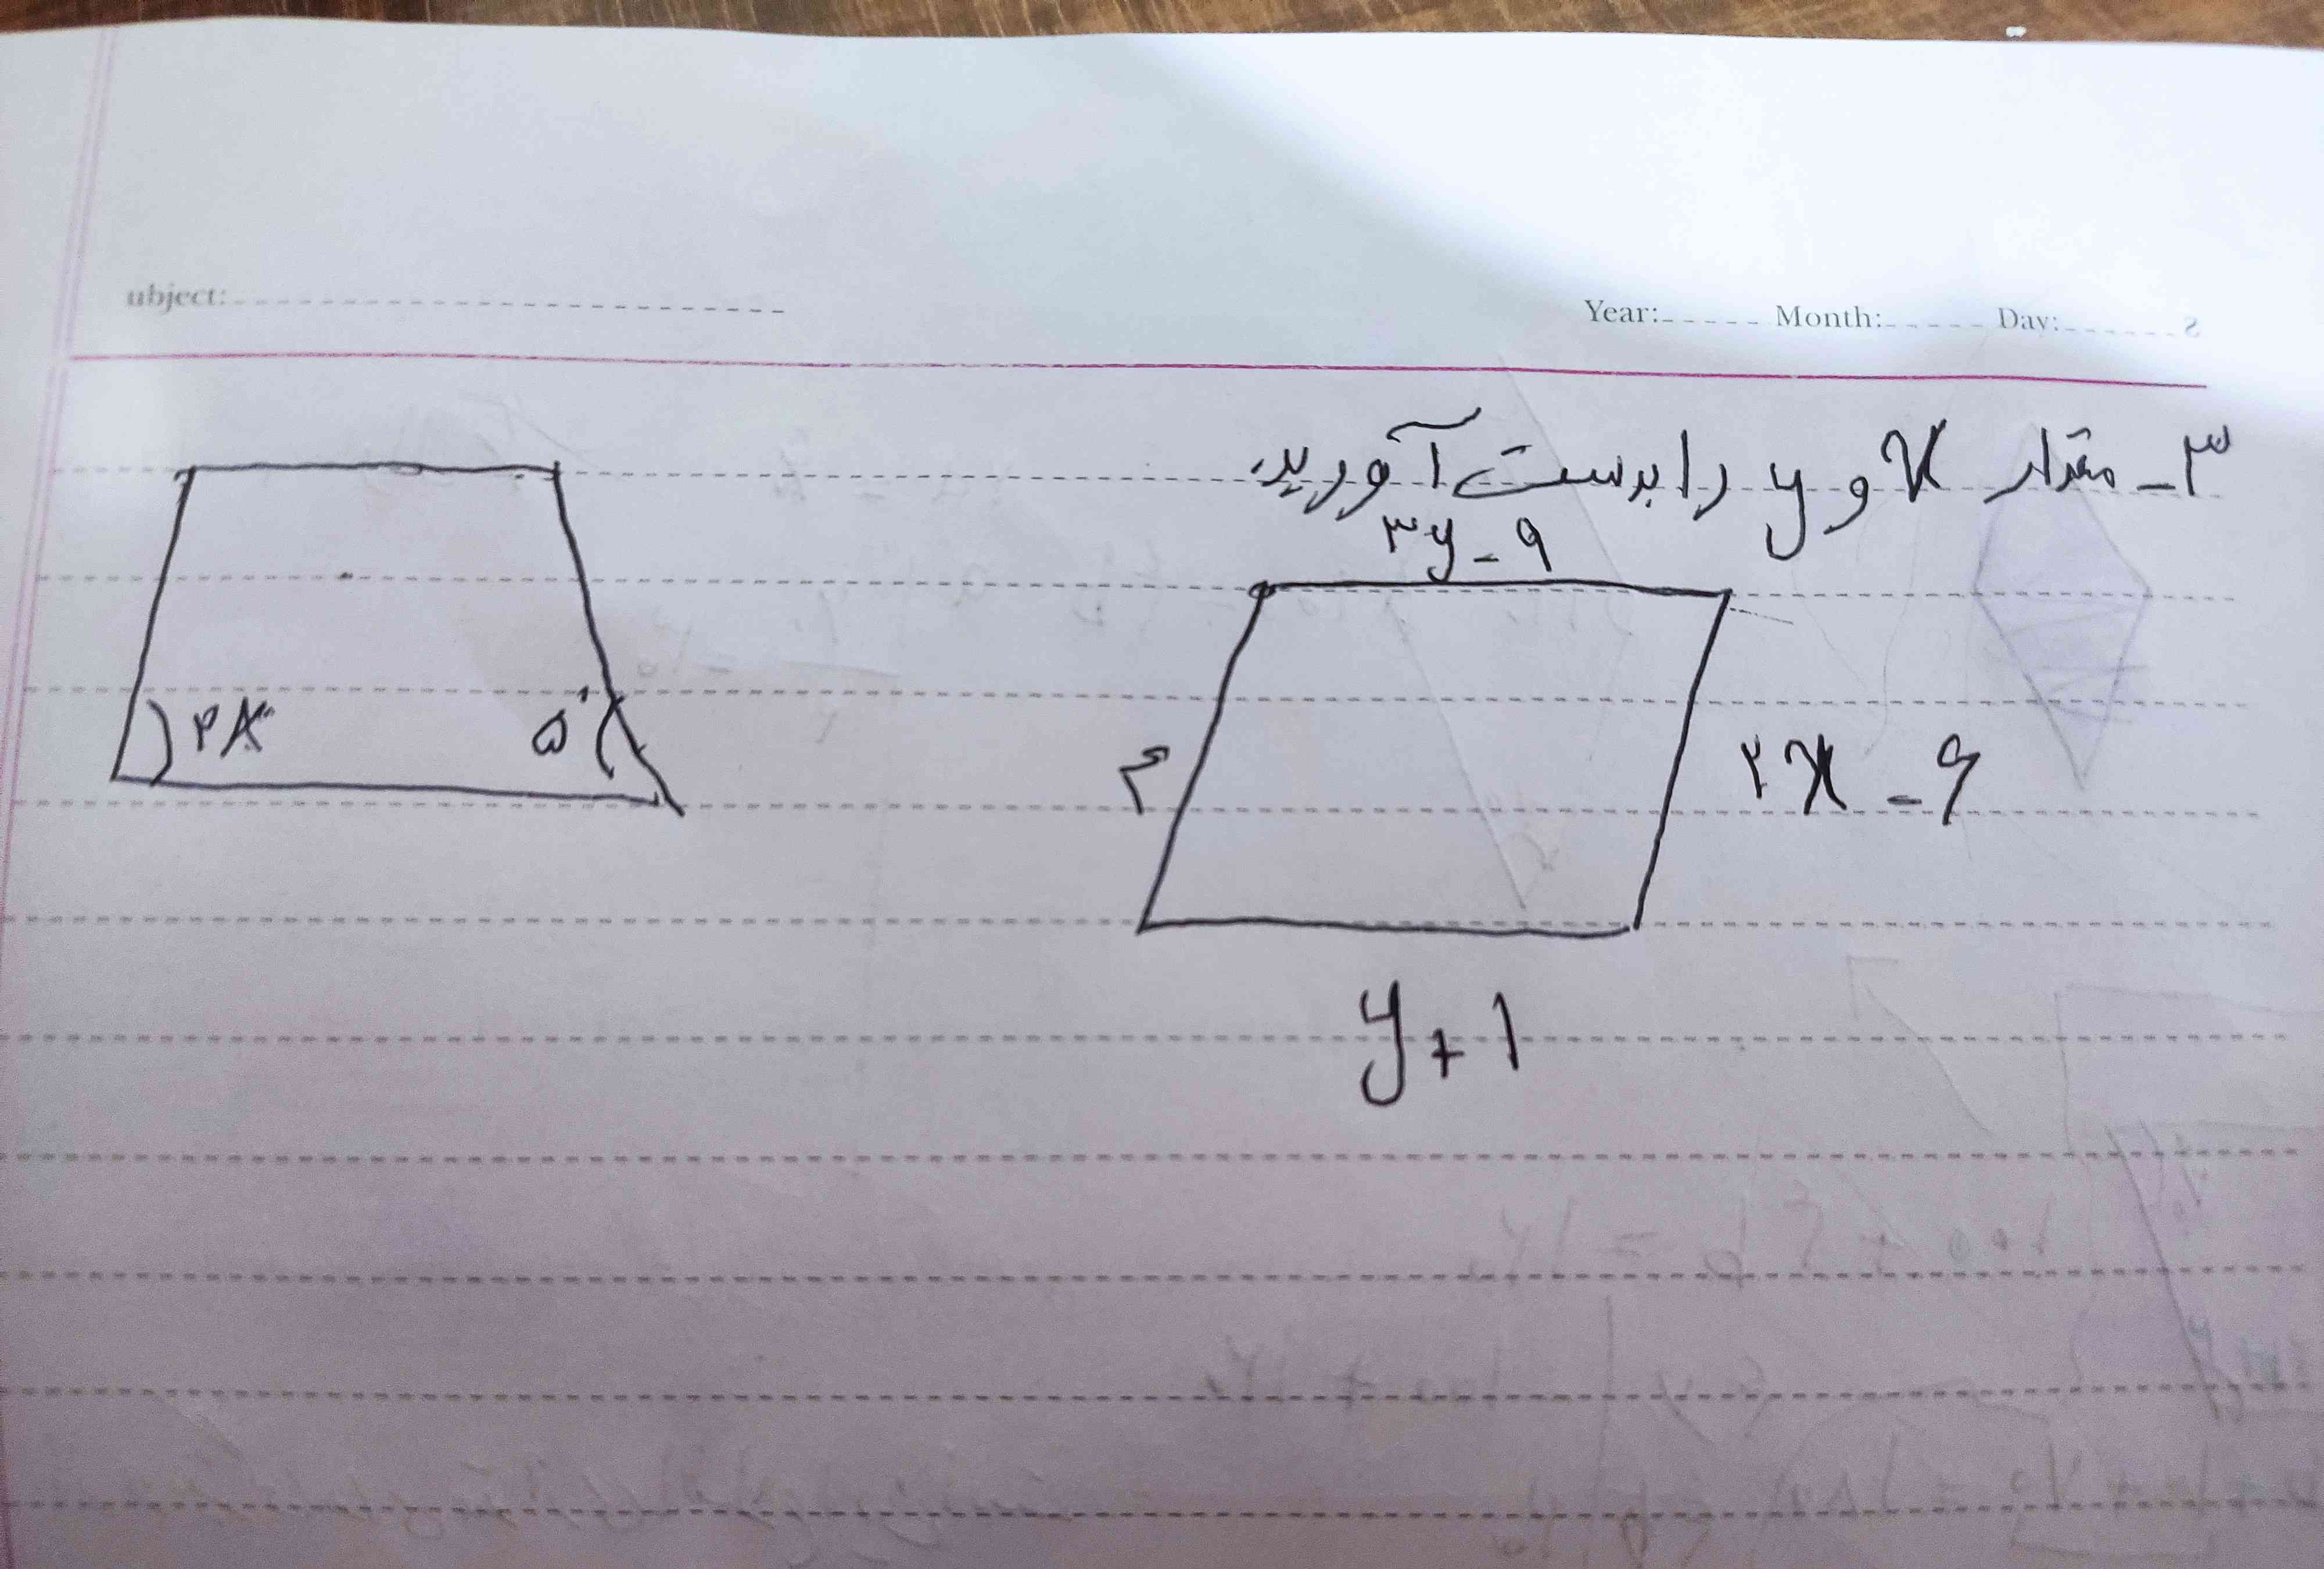 ubject:
Year: Month: Day:
۳ـ مقدار x و y را بدست آورید.
۳y - ۹
۴
۲x - ۶
y + ۱
۲x
۵۰